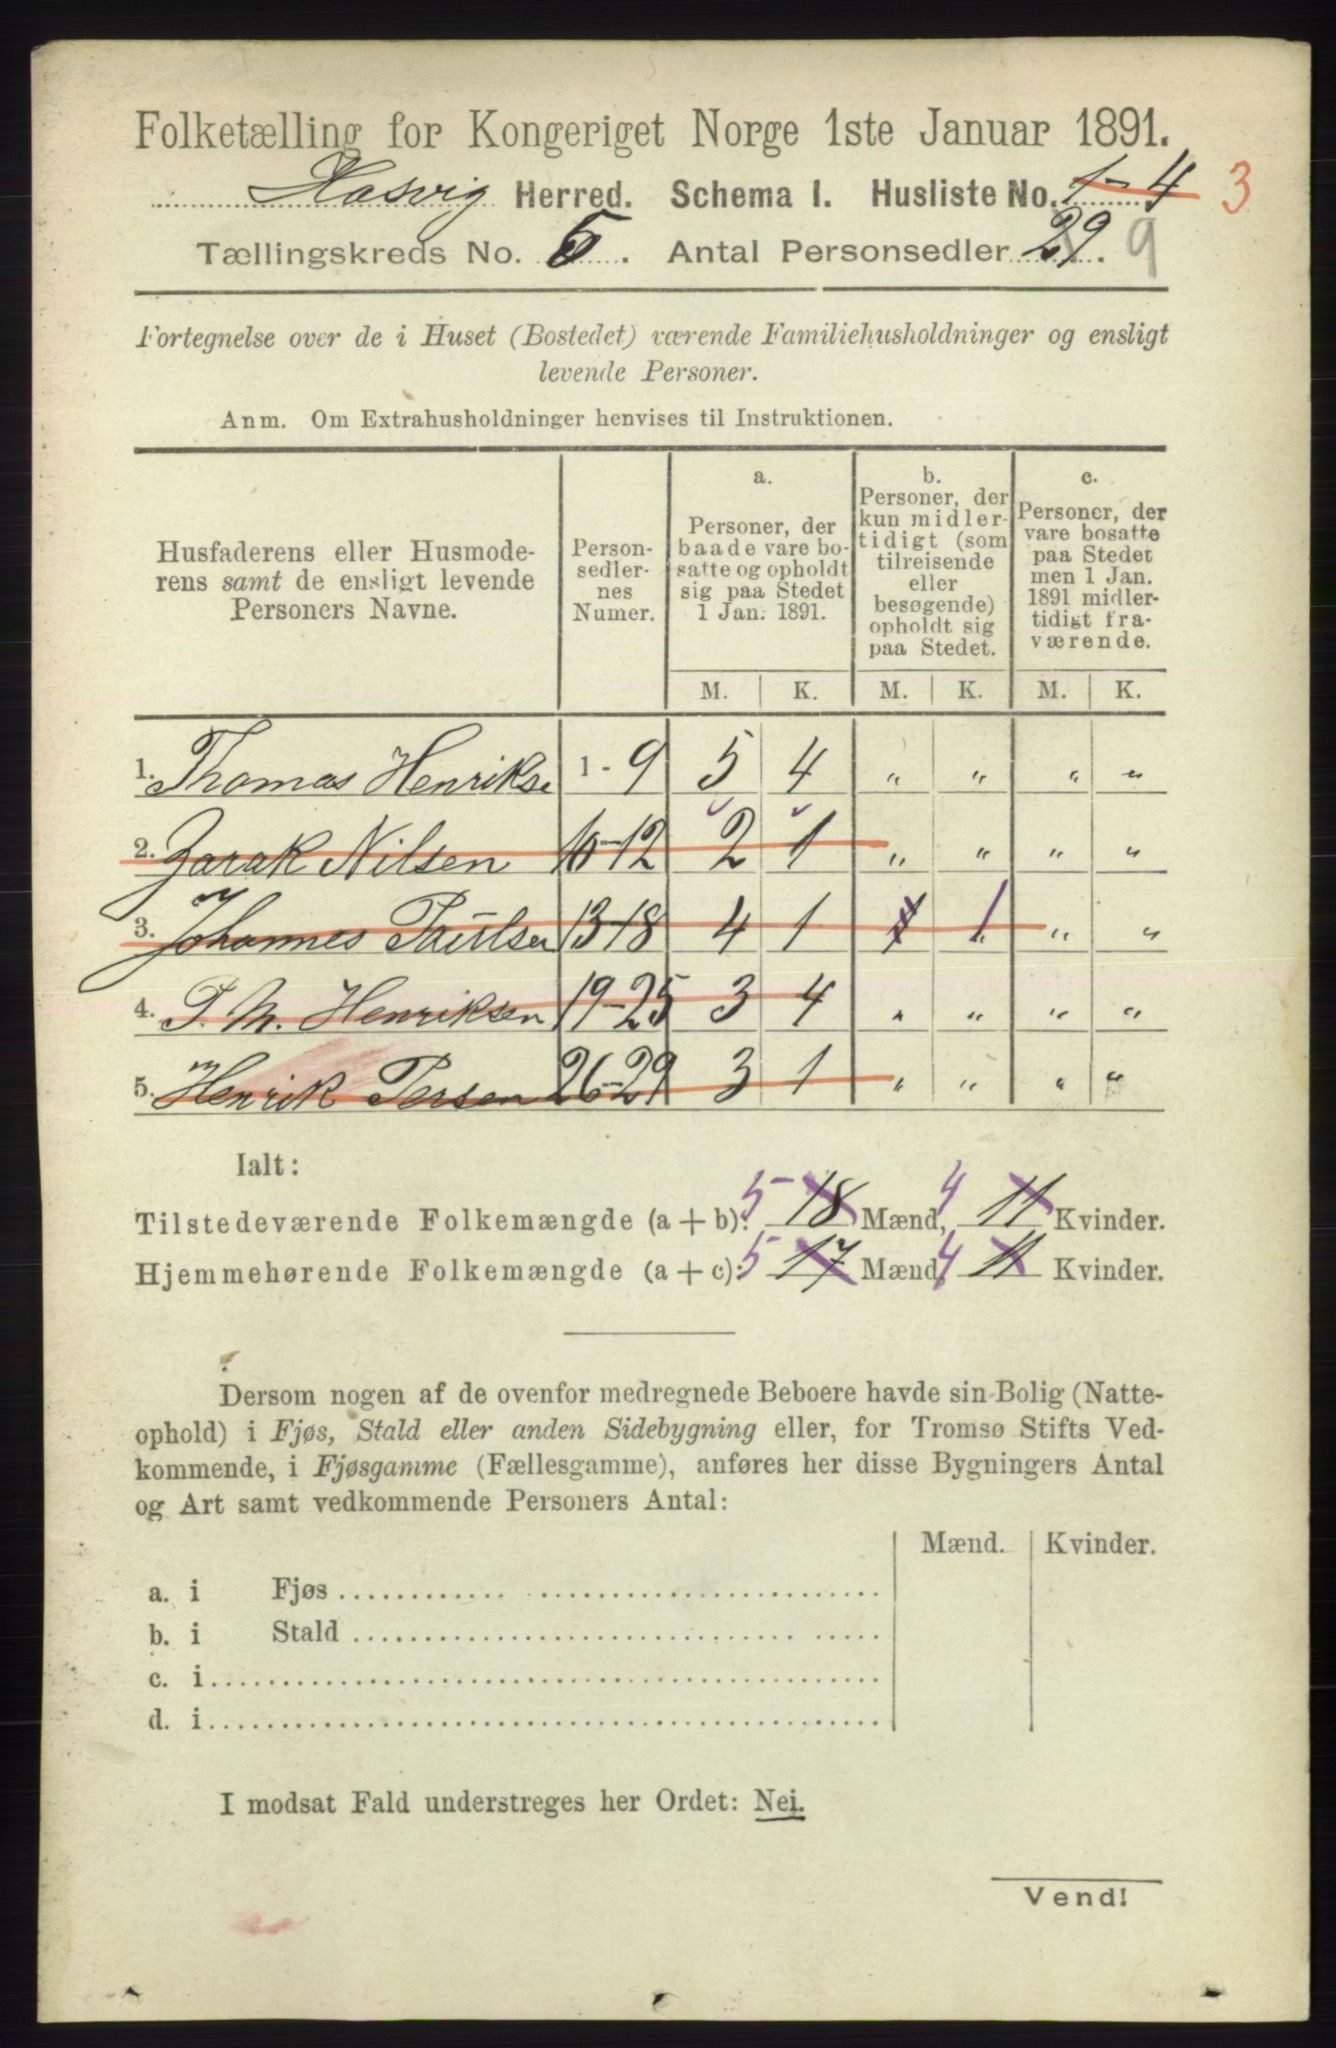 Folketælling for Kongeriget Norge 1ste Januar 1891.
Hasvig Herred. Schema I. Husliste No. 1-4 3
Tællingskreds No. 5. Antal Personsedler 29. 9
Fortegnelse over de i Huset (Bostedet) værende Familiehusholdninger og ensligt
levende Personer.
Anm. Om Extrahusholdninger henvises til Instruktionen.
Husfaderens eller Husmode-
rens samt de ensligt levende
Personers Navne.
Person-
sedler-
nes
Numer.
a.
Personer, der
baade vare bo-
satte og opholdt
sig paa Stedet
1 Jan. 1891.
b.
Personer, der
kun midler-
tidigt (som
tilreisende
eller
besøgende)
opholdt sig
paa Stedet.
c.
Personer, der
vare bosatte
paa Stedet
men 1 Jan.
1891 midler-
tidigt fra-
værende.
M. K. M. K. M. K.
1. Thomas Henrikse 1-9 5 4 " " " "
2. Zarak Nilsen 10-12 2 1 " " " "
3. Johannes Paulsen 13-18 4 1 1 1 " "
4. P. M. Henriksen 19-25 3 4 " " " "
5. Henrik Persen 26-29 3 1 " " " "
Ialt:
Tilstedeværende Folkemængde (a+b): 5 18 Mænd, 4 11 Kvinder.
Hjemmehørende Folkemængde (a+c): 5 17 Mænd 4 11 Kvinder.
Dersom nogen af de ovenfor medregnede Beboere havde sin Bolig (Natte-
ophold) i Fjøs, Stald eller anden Sidebygning eller, for Tromsø Stifts Ved-
kommende, i Fjøsgamme (Fællesgamme), anføres her disse Bygningers Antal
og Art samt vedkommende Personers Antal:
Mænd. Kvinder.
a. i Fjøs
b. i Stald
c. i
d. i
I modsat Fald understreges her Ordet: Nei.
Vend!